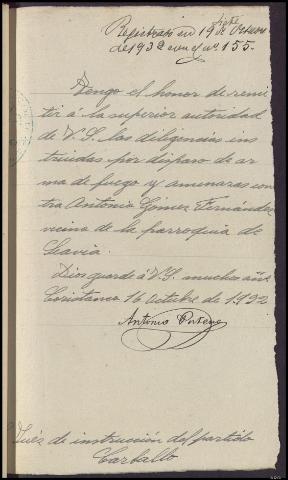 Registrado en 19 de Octubre
siete
de 1932 con el nº 155.
Tengo el honor de remi
tir á la superior autoridad
de V.S. las diligencias ins
truidas por disparo de ar
ma de fuego y amenazas con
tra Antonia Gómez Fernández
vecina de la parroquia de
Seavia.
Dios guarde á V.S. muchos añs.
Coristanco 16 octubre de 1932
Antonio
Jués de instrucción del partido
Carballo